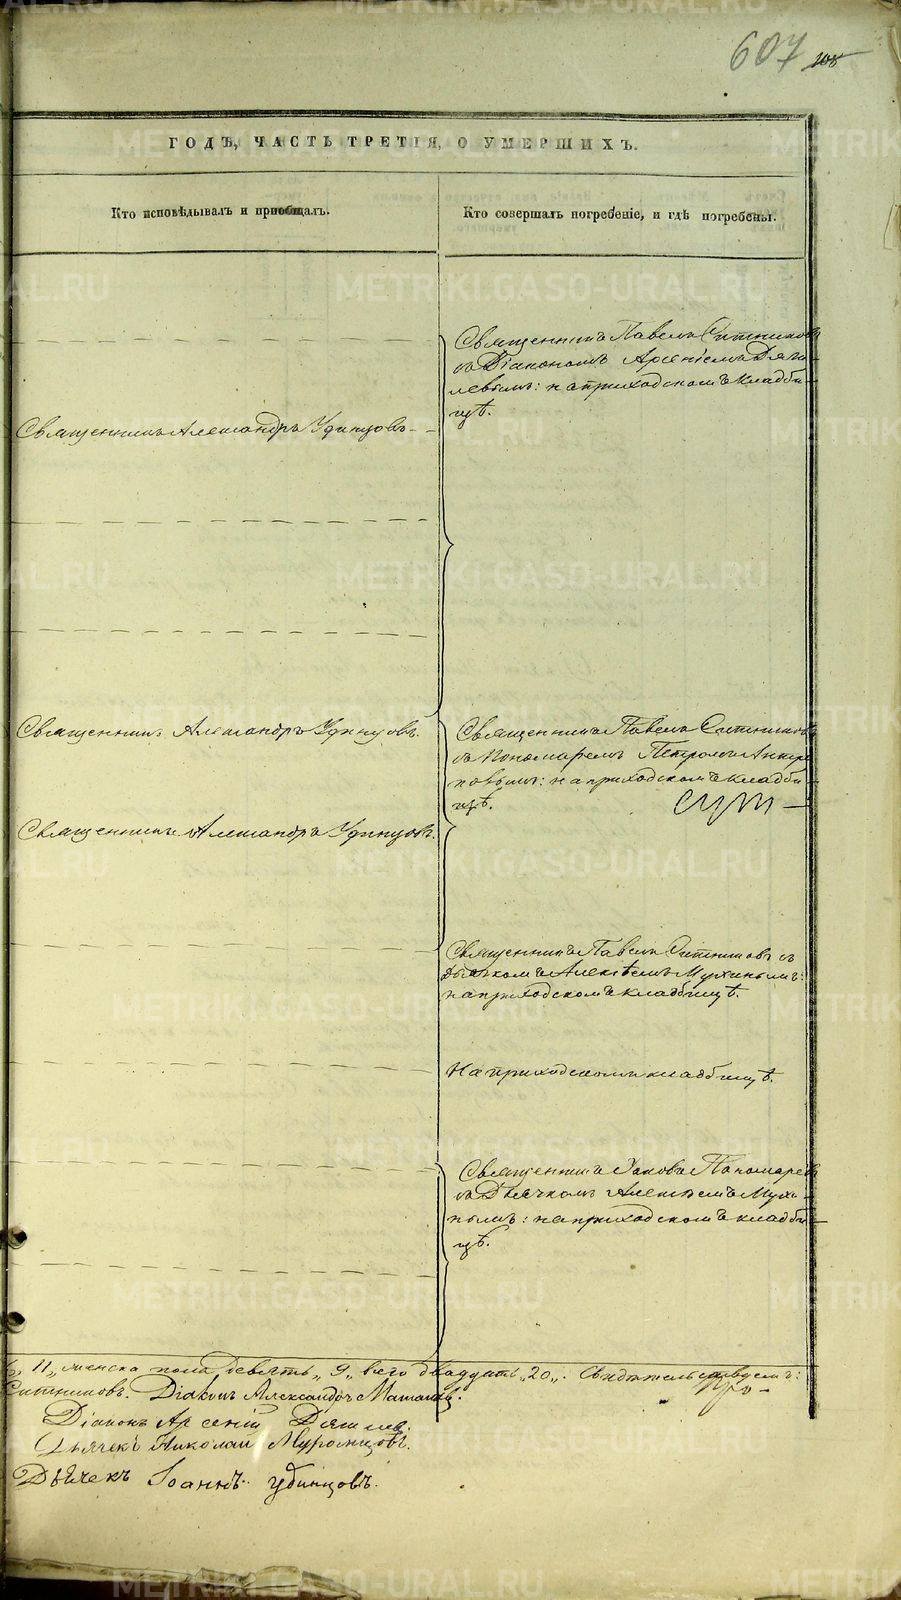 607 108
ГОДѢ, ЧАСТЬ ТРЕТІЯ, О УМЕРШИХЪ.
Кто исповѣдывалъ и пріобщалъ.
Кто совершалъ погребеніе, и гдѣ погребены.
Священникъ Павелъ Ситниковъ
съ Діакономъ Арсеніемъ Дяги-
левымъ: на приходскомъ кладби-
щѣ.
Священникъ Александръ Удинцовъ
Священникъ Александръ Удинцовъ.
Священникъ Павелъ Ситниковъ
съ Пономаремъ Петромъ
на приходскомъ кладби-
щѣ.
Священникъ Александръ Удинцовъ.
Священникъ Павелъ Ситниковъ съ
Дьячкомъ Алексѣемъ Мухинымъ:
на приходскомъ кладбищѣ.
На приходскомъ кладбищѣ.
Священникъ Іаковъ Пономаревъ
съ Дьячкомъ Алексѣемъ Мухи-
нымъ: на приходскомъ кладби-
щѣ.
11, женска пола девять, 9, всего двадцать, 20,. Свидѣтельствуемъ:
Ситниковъ. Діаконъ Александръ
Діаконъ Арсеній Дягилевъ.
Дьячекъ Николай Муромцовъ.
Дьячекъ Іоаннъ Удинцовъ.
METRIKI.GASO-URAL.RU